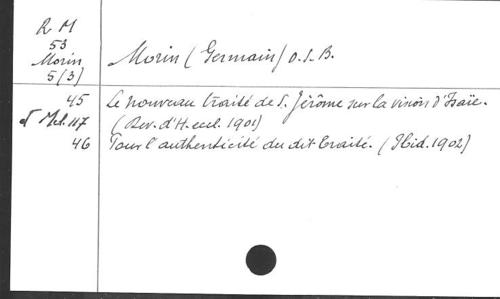 R M
53
Morin
5(3)
Morin (Germain) O.S.B.
45 Le nouveau traité de S. Jérôme sur la vision d'Isaïe.
Mél. 117 (Rev. d'H. eccl. 1901)
46 Pour l'authenticité du dit traité. (Ibid. 1902)